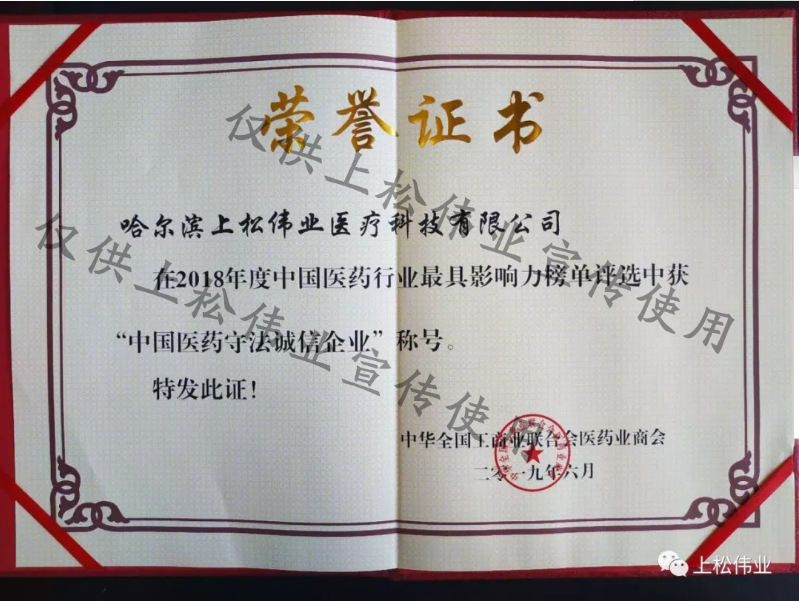 荣誉证书
哈尔滨上松伟业医疗科技有限公司
在2018年度中国医药行业最具影响力榜单评选中获
“中国医药守法诚信企业”称号。
特发此证！
中华全国工商业联合会医药业商会
二〇一九年六月
仅供上松伟业宣传使用
仅供上松伟业宣传使用
上松伟业